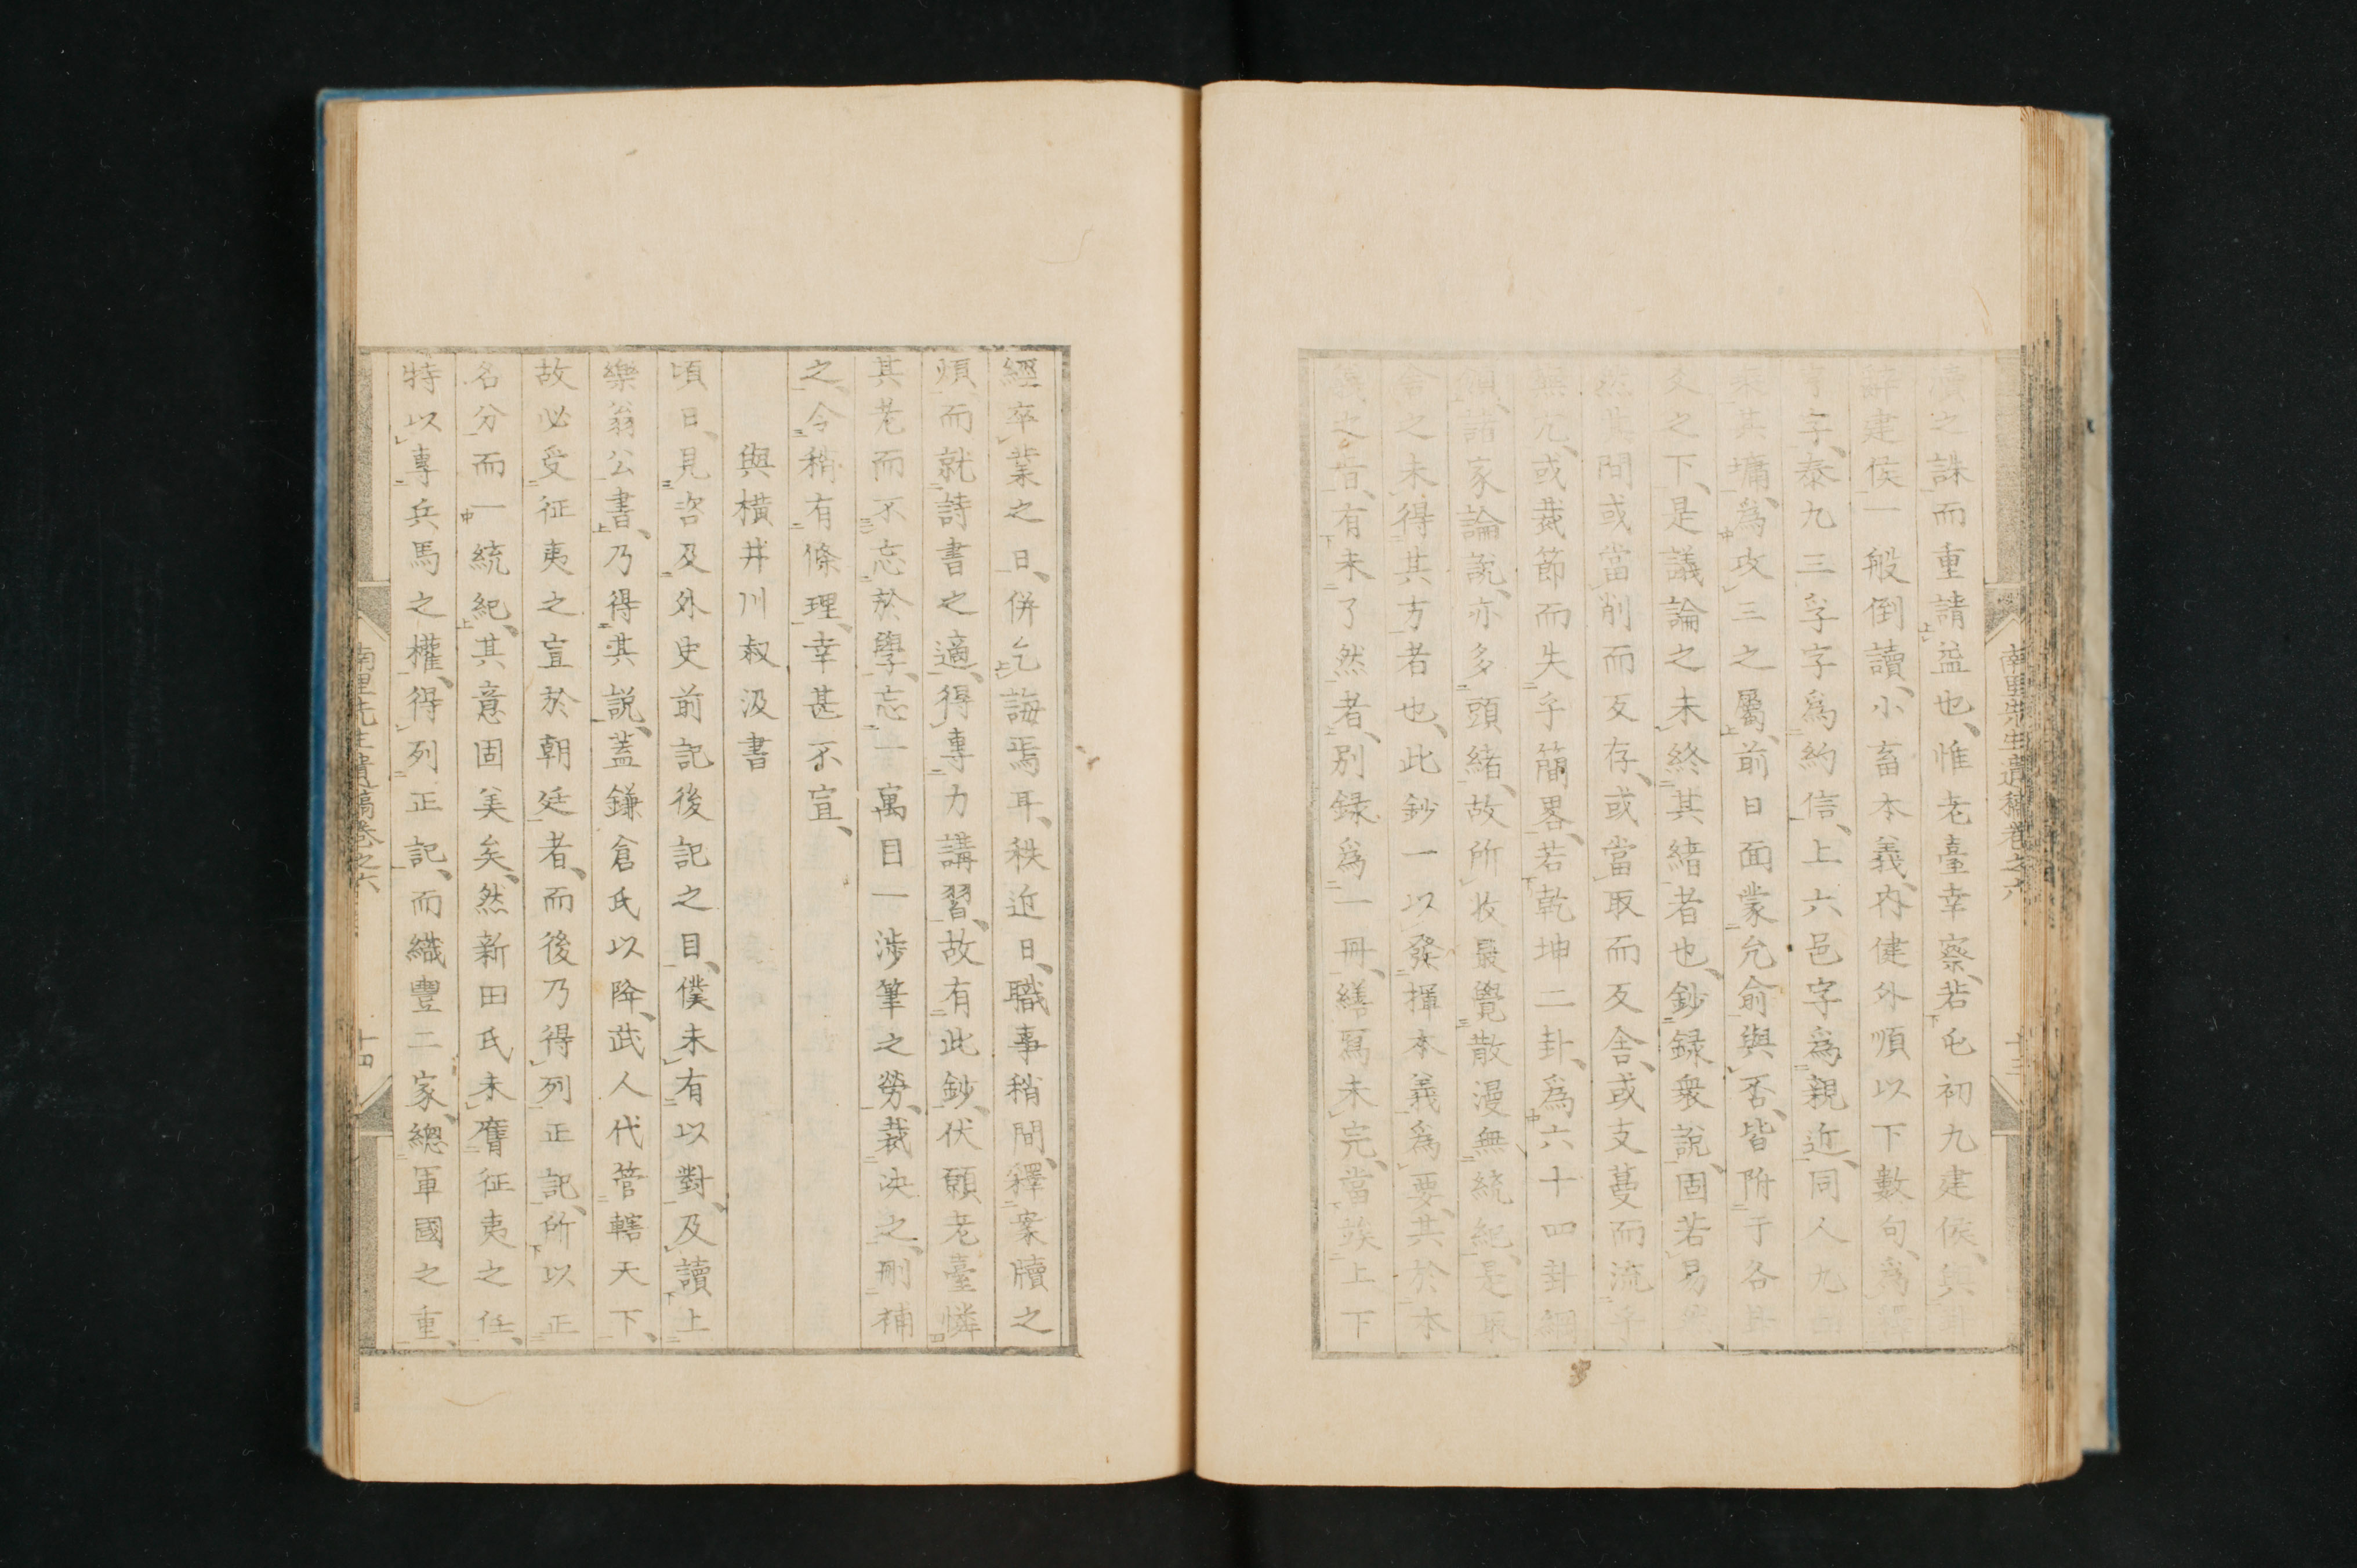 瀆之誅而重請益也、惟老臺幸察、若屯初九建侯、與
辭建侯一般倒讀、小畜本義、内健外順以下數句、爲
字、泰九三孚字爲約信、上六邑字爲親近、同人九
乘其墉、爲攻三之屬、前日面蒙允俞與否、皆附于各
爻之下、是議論之未終其緒者也、鈔録衆說、固若易
然其間或當削而反存、或當取而反舍、或支蔓而流乎
無尤、或裁節而失乎簡畧、若乾坤二卦、爲六十四卦綱
領、諸家論說、亦多頭緒、故所收最覺散漫無統紀、是
舍之未得其方者也、此鈔一以發揮本義爲要、其於本
義之旨、有未了然者、別録爲一冊、繕寫未完、當竢上下
南里先生遺稿卷之六
十三
經卒業之日、併乞誨焉耳、秩近日、職事稍間、釋案牘之
煩而就詩書之適、得專力講習、故有此鈔、伏願老臺憐
其老而不忘於學、忘一寓目一涉筆之勞、裁決之、刪補
之、今稍有條理、幸甚不宣、
與橫井川叔汲書
頃日、見咨及外史前記後記之目、僕未有以對、及讀上
樂翁公書、乃得其說、蓋鎌倉氏以降、武人代管轄天下、
故必受征夷之宣於朝廷者、而後乃得列正記、所以正
名分而一統紀、其意固美矣、然新田氏未膺征夷之任、
特以專兵馬之權、得列正記、而織豐二家、總軍國之重、
南里先生遺稿卷之六
十四